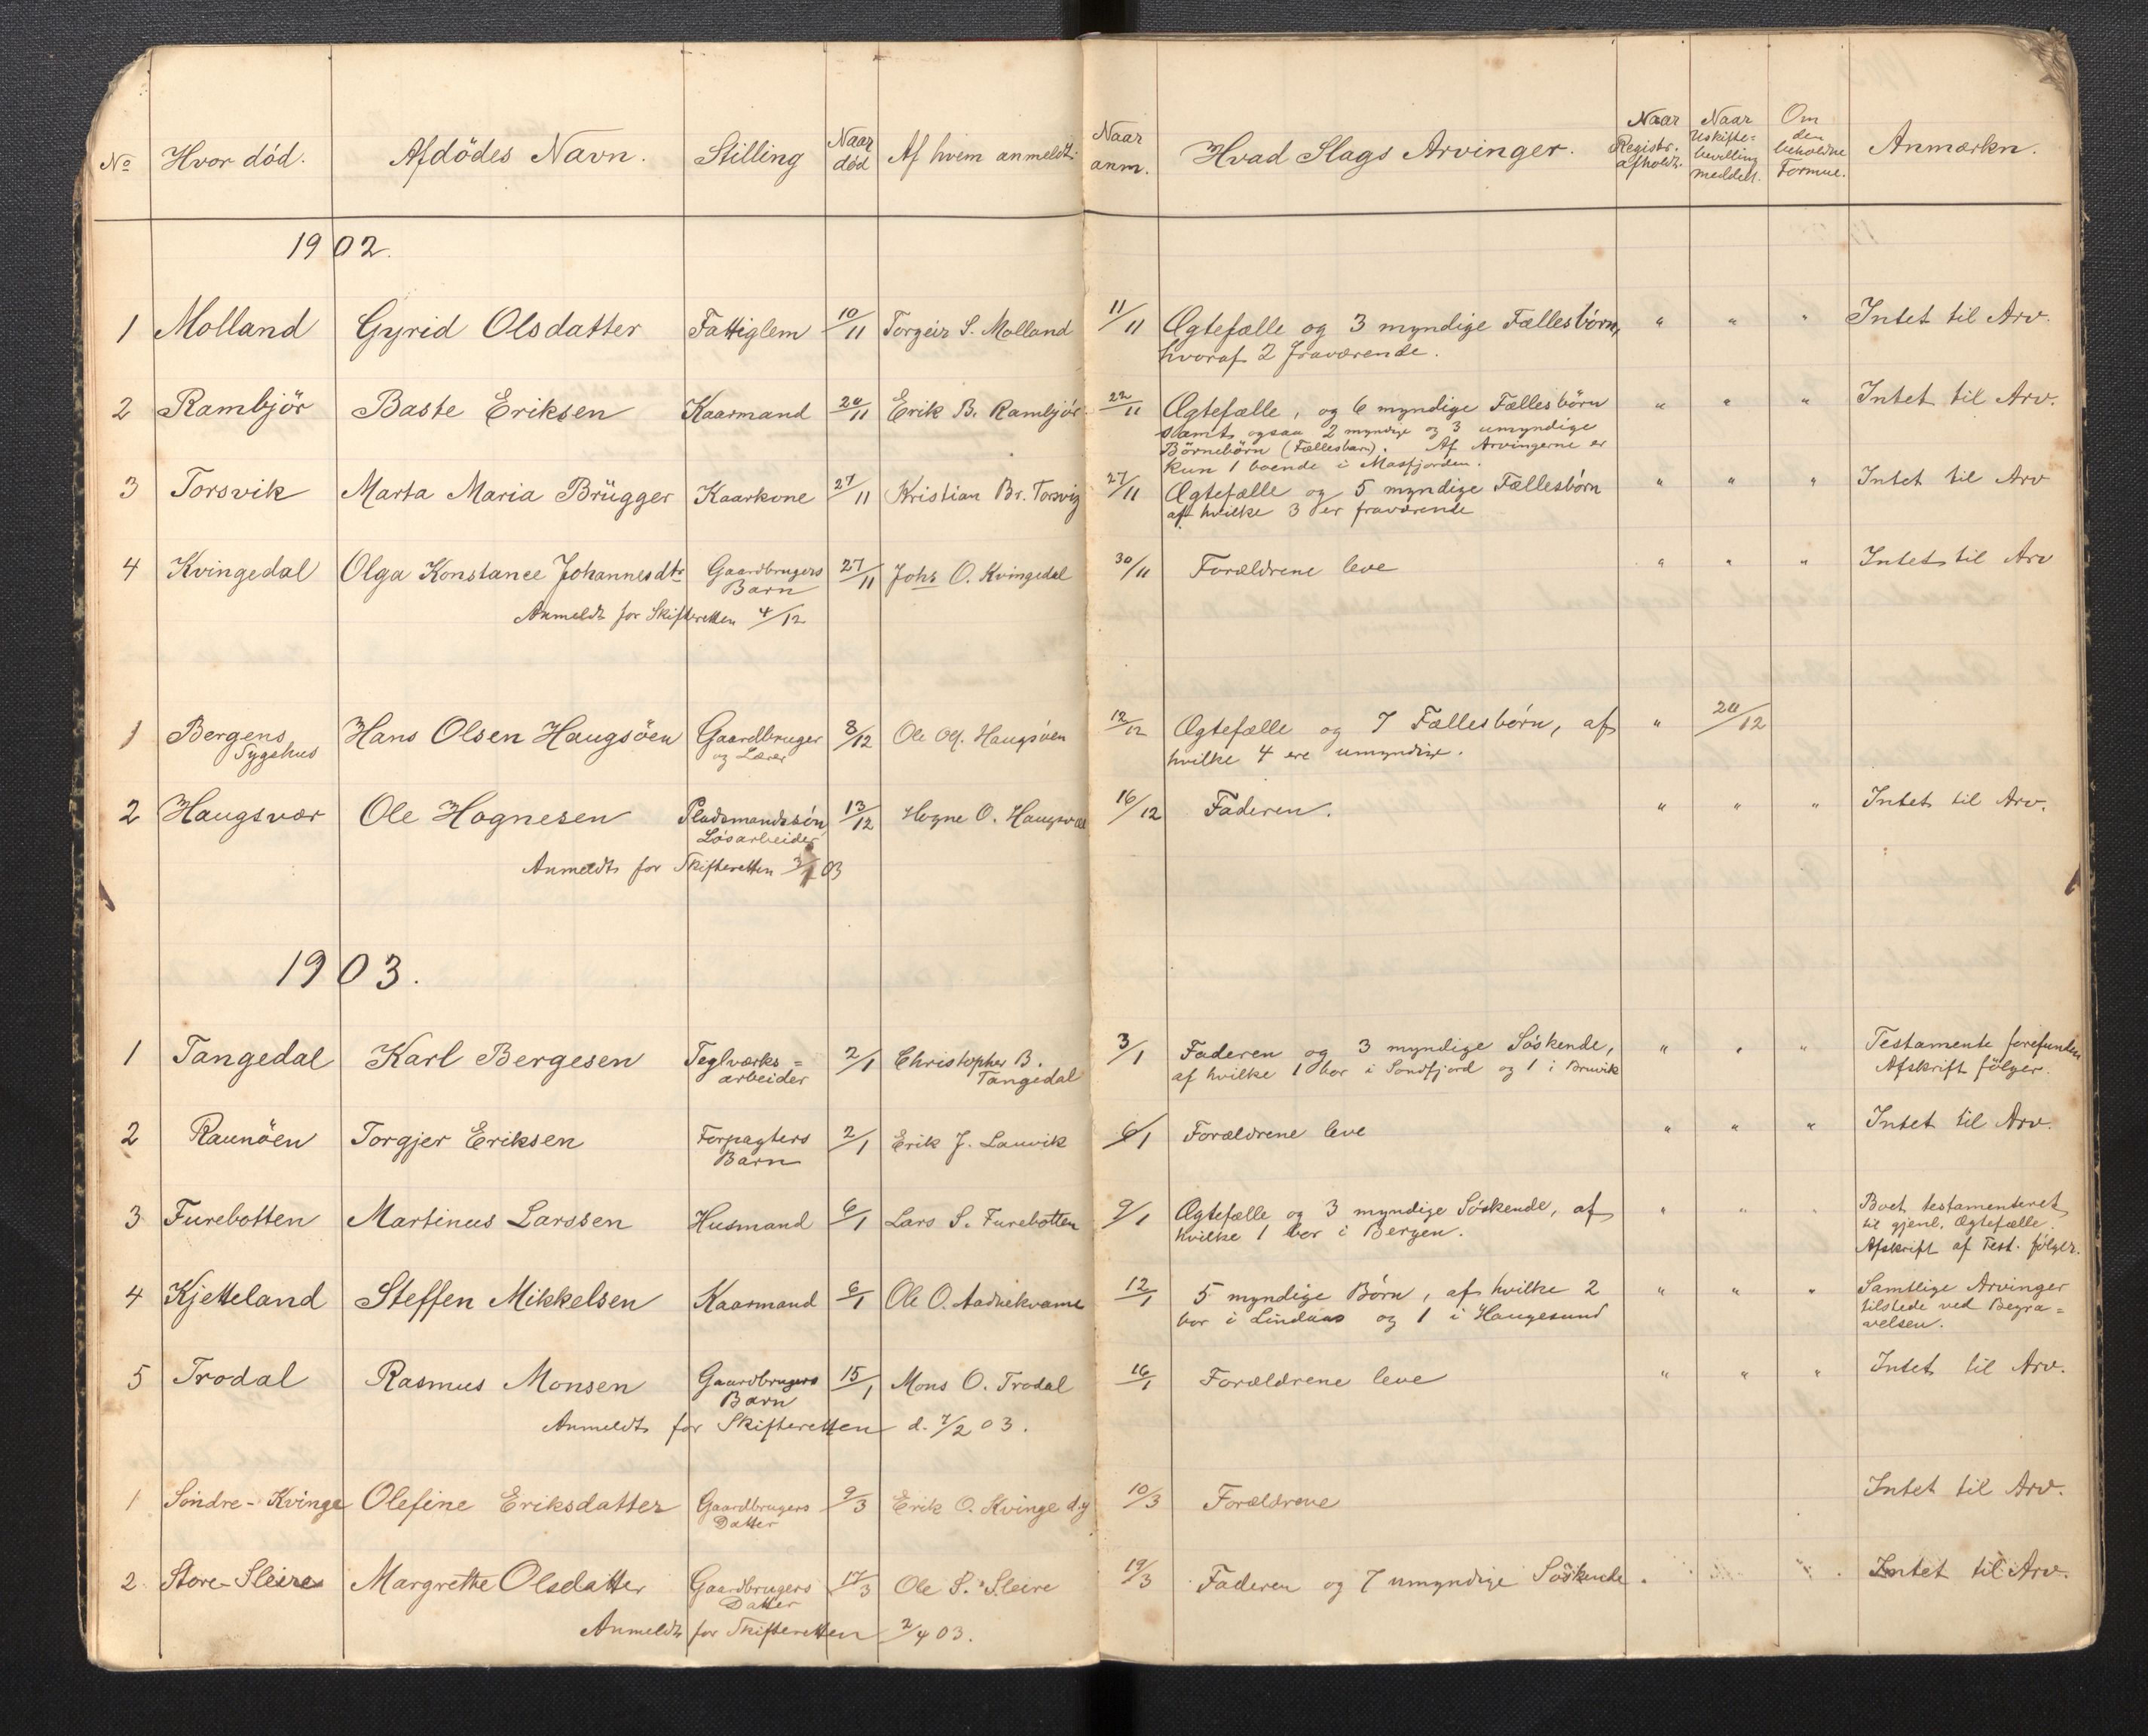 No Hvor död. Afdödes Navn. Stilling Naar död Af hvem anmeldt. Naar anm. Hvad Slags Arvinger. Naar Registr. afholdt. Naar Uskifte-bevilling meddelt. Om den beholdne Formue. Anmærkn.
1902.
1 Molland Gyrid Olsdatter Fattiglem 10/11 Torgeir S. Molland 11/11 Ægtefælle og 3 myndige Fællesbörn, " " " Intet til Arv.
hvoraf 2 fraværende.
2 Rambjör Baste Eriksen Kaarmand 20/11 Erik B. Rambjör 22/11 Ægtefælle, og 6 myndige Fællesbörn " " " Intet til Arv.
samt ogsaa 2 myndige og 3 umyndige
Börnebörn (Fællesbarn). Af Arvingerne er
kun 1 boende i Masfjorden.
3 Torsvik Marta Maria Brügger Kaarkone 27/11 Kristian Br. Torsvig 27/11 Ægtefælle og 5 myndige Fællesbörn " " " Intet til Arv
af hvilke 3 er fraværende
4 Kvingedal Olga Konstance Johannesdtr Gaardbrugers 27/11 Johs O. Kvingedal 30/11 Forældrene leve " " " Intet til Arv
Barn
Anmeldt for Skifteretten 4/12
1 Bergens Hans Olsen Haugsöen Gaardbruger 8/12 Ole Olf. Haugsöen 12/12 Ægtefælle og 7 Fællesbörn, af " 20/12
Sygehus og Lærer hvilke 4 ere umyndige.
2 Haugsvær Ole Hognesen Pladsmandssön 13/12 Hogne O. Haugsvær 16/12 Faderen. " " " Intet til Arv.
Lösarbeider
Anmeldt for Skifteretten 3/1 03
1903.
1 Tangedal Karl Bergesen Teglværks= 2/1 Christopher B. 3/1 Faderen og 3 myndige Söskende, " " " Testamente forefunden
arbeider Tangedal af hvilke 1 bor i Sondfjord og 1 i Bruvik Afskrift fölger.
2 Raunöen Torgjer Eriksen Forpagters 2/1 Erik J. Lauvik 6/1 Forældrene leve " " " Intet til Arv.
Barn
3 Furebotten Martinus Larssen Husmand 6/1 Lars S. Furebotten 9/1 Ægtefælle og 3 myndige Söskende, af " " " Boet testamenteret
hvilke 1 bor i Bergen. til gjenl. Ægtefælle.
Afskrift af Test. fölger.
4 Kjetteland Steffen Mikkelsen Kaarmand 6/1 Ole O. Aadnekvame 12/1 5 myndige Börn, af hvilke 2 " " " Samtlige Arvinger
bor i Lindaas og 1 i Haugesund tilstede ved Begra=
velsen.
5 Trodal Rasmus Monsen Gaardbrugers 15/1 Mons O. Trodal 16/1 Forældrene leve " " " Intet til Arv.
Barn
Anmeldt for Skifteretten d. 7/2 03.
1 Söndre-Kvinge Olefine Eriksdatter Gaardbrugers 9/3 Erik O. Kvinge d.y 10/3 Forældrene Intet til Arv.
Datter
2. Store-Sleire Margrethe Olsdatter Gaardbrugers 17/3 Ole S. Sleire 19/3 Faderen og 7 umyndige Söskende. Intet til Arv.
Datter
Anmeldt for Skifteretten 2/4 03.